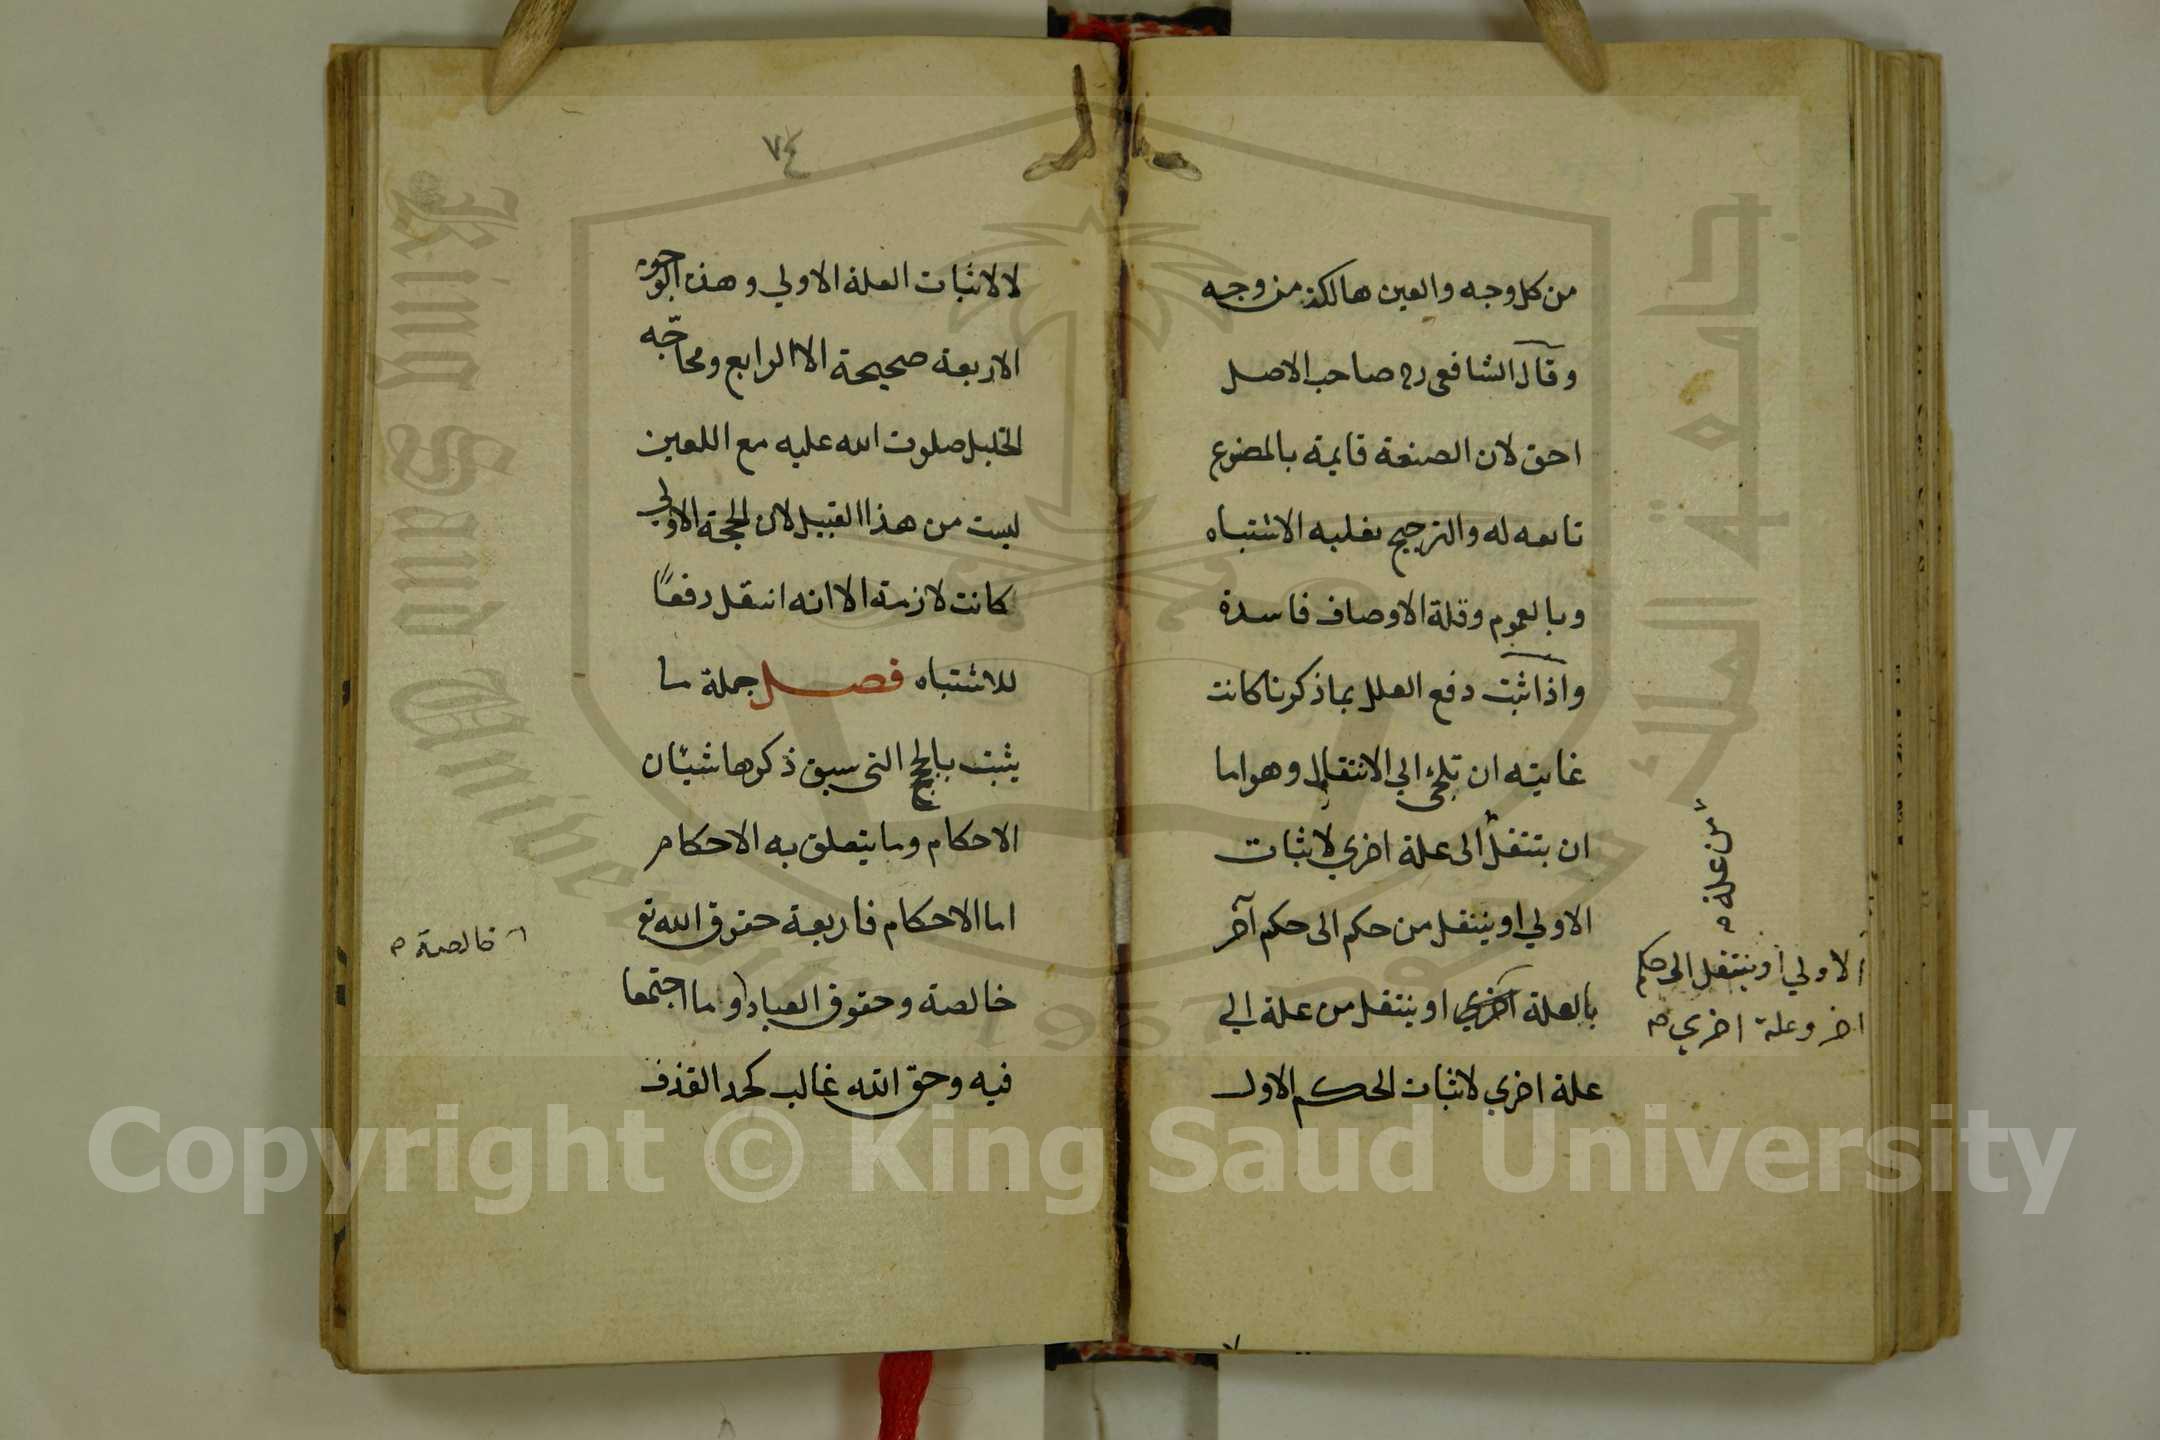 من كل وجه والعين هالكة من وجه
وقال الشافعي رح صاحب الاصل
احق لان الصنعة قايمة بالمصنوع
تابعه له والترجيح بغلبه الاشتباه
وبالعموم وقلة الاوصاف فاسدة
واذا ثبت دفع العلل بما ذكرنا كانت
غايته ان تلجئ الي الانتقال وهو اما
ان ينتقل الى علة اخري لاثبات
الاولي او ينتقل من حكم الى حكم آخر
بالعلة او ينتقل من علة الي
علة اخري لاثبات الحكم الاول
من علة
الاولي او ينتقل الى حكم
اخر وعلة اخري صح
٧٤
لا لاثبات العلة الاولي وهذه الوجوه
الاربعة صحيحة الا الرابع ومحاجّه
الخليل صلوت الله عليه مع اللعين
ليست من هذا القبيل لان الحجة الاولي
كانت لازمة الا انه انتقل دفعًا
للاشتباه فصل جملة ما
يثبت بالحجج التي سبق ذكرها شيئان
الاحكام وما يتعلق به الاحكام
اما الاحكام فاربعة حقوق الله تع
خالصة وحقوق العباد وما اجتمعا
فيه وحق الله غالب كحد القذف
خالصة
King Saud University
جامعة الملك سعود
1957
Copyright © King Saud University